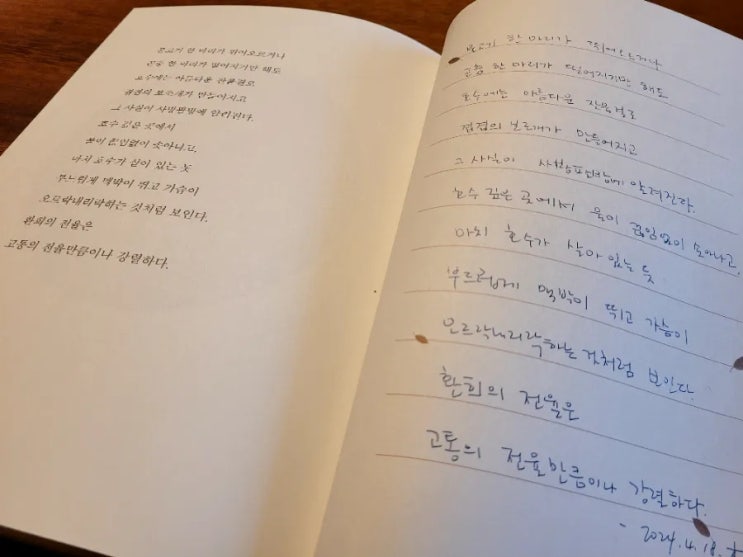 물고기 한 마리가 뛰어오르거나
곤충 한 마리가 떨어지기만 해도
호수에는 아름다운 잔물결로
겹겹의 보조개가 만들어지고
그 사실이 사방팔방에 알려진다.
호수 깊은 곳에서
물이 끊임없이 솟아나고,
마치 호수가 살아 있는 듯
부드럽게 맥박이 뛰고 가슴이
오르락내리락하는 것처럼 보인다.
환희의 전율은
고통의 전율만큼이나 강렬하다.
물고기 한 마리가 뛰어오르거나
곤충 한 마리가 떨어지기만 해도
호수에는 아름다운 잔물결로
겹겹의 보조개가 만들어지고
그 사실이 사방팔방에 알려진다.
호수 깊은 곳에서 물이 끊임없이 솟아나고,
마치 호수가 살아 있는 듯
부드럽게 맥박이 뛰고 가슴이
오르락내리락하는 것처럼 보인다.
환희의 전율은
고통의 전율만큼이나 강렬하다.
- 2024.4.18.